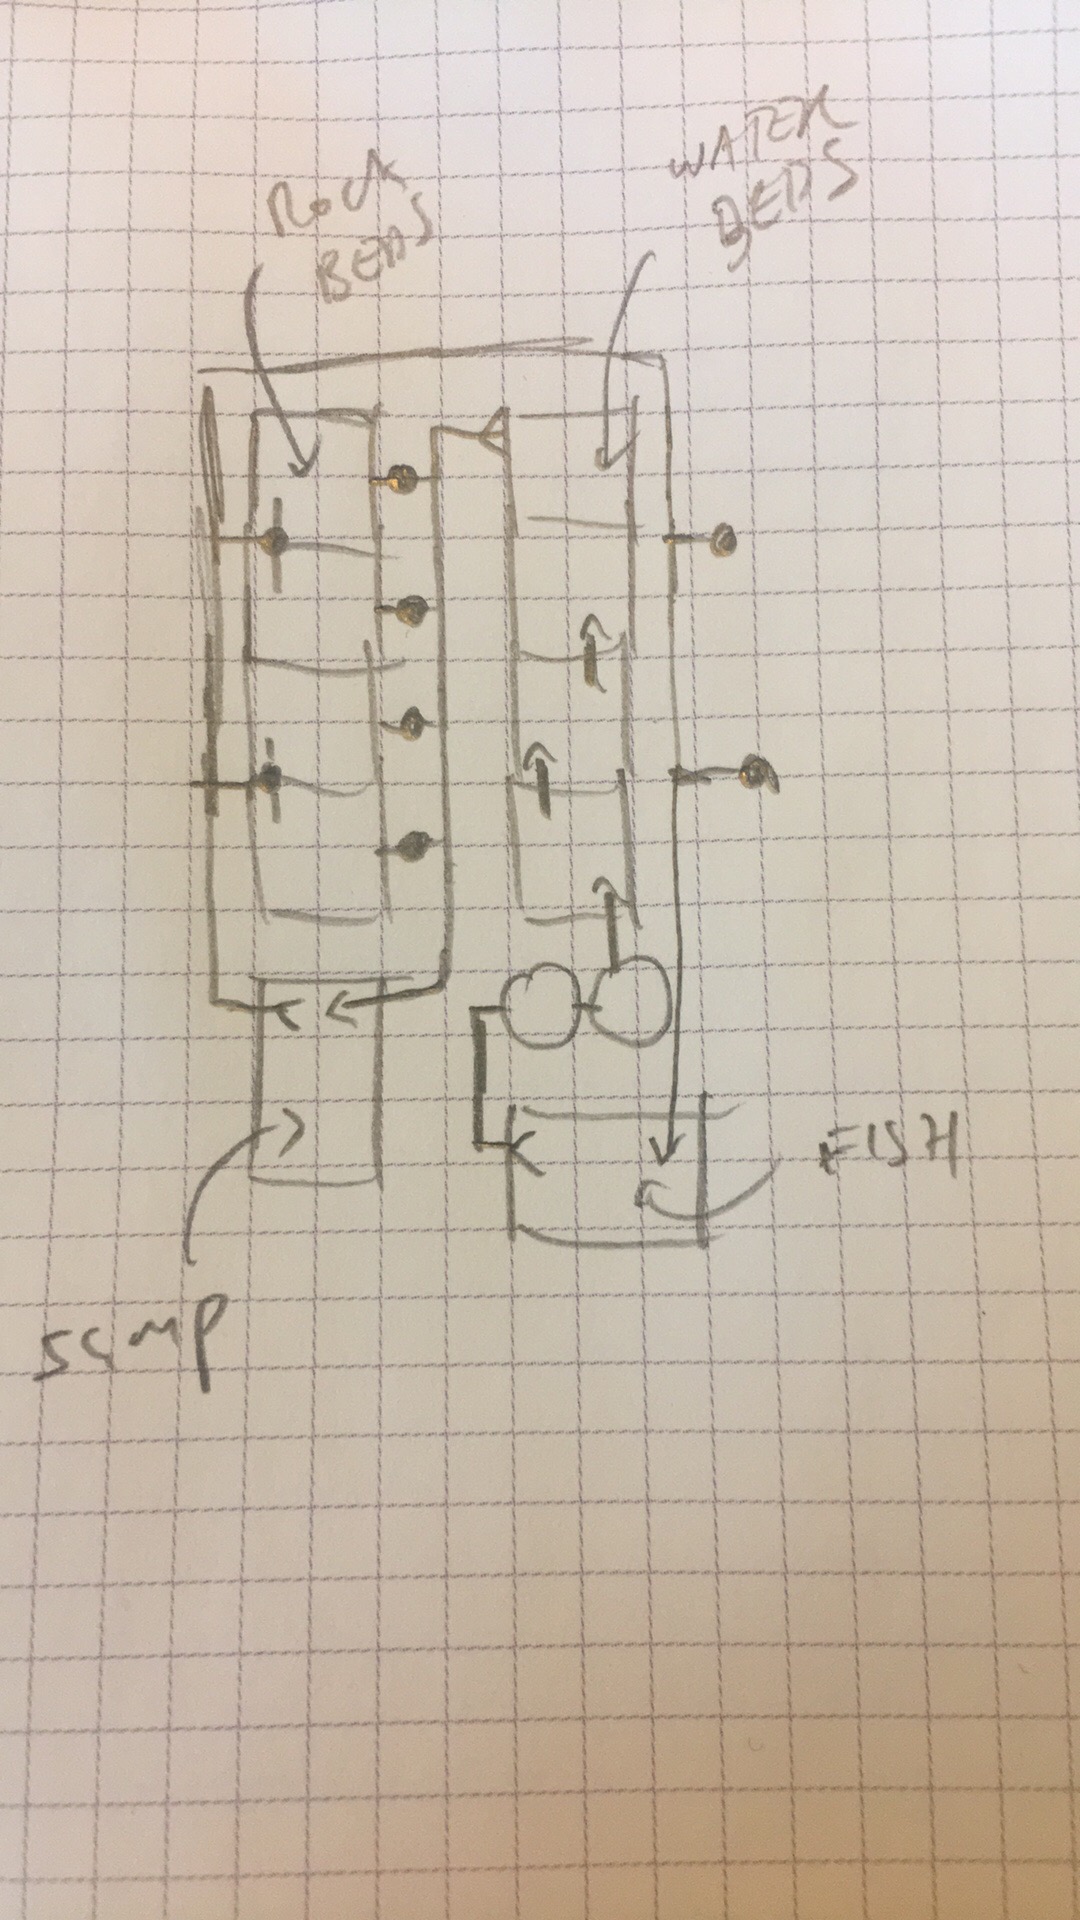 ROCK
BEDS
WATER
BEDS
FISH
SUMP